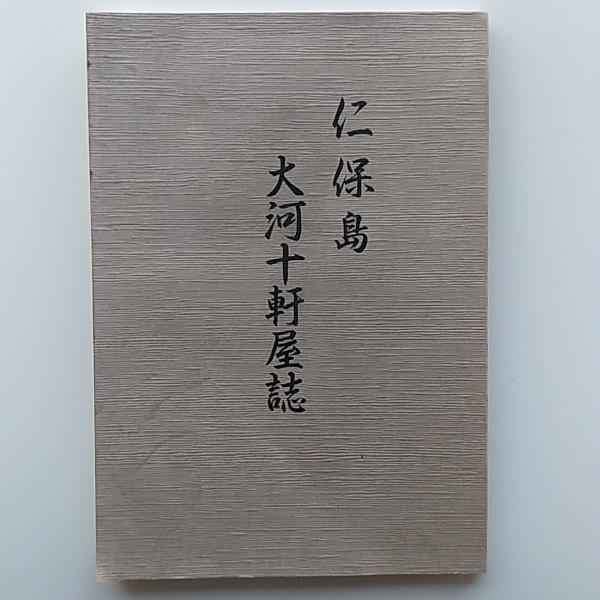 仁保島
大河十軒屋誌